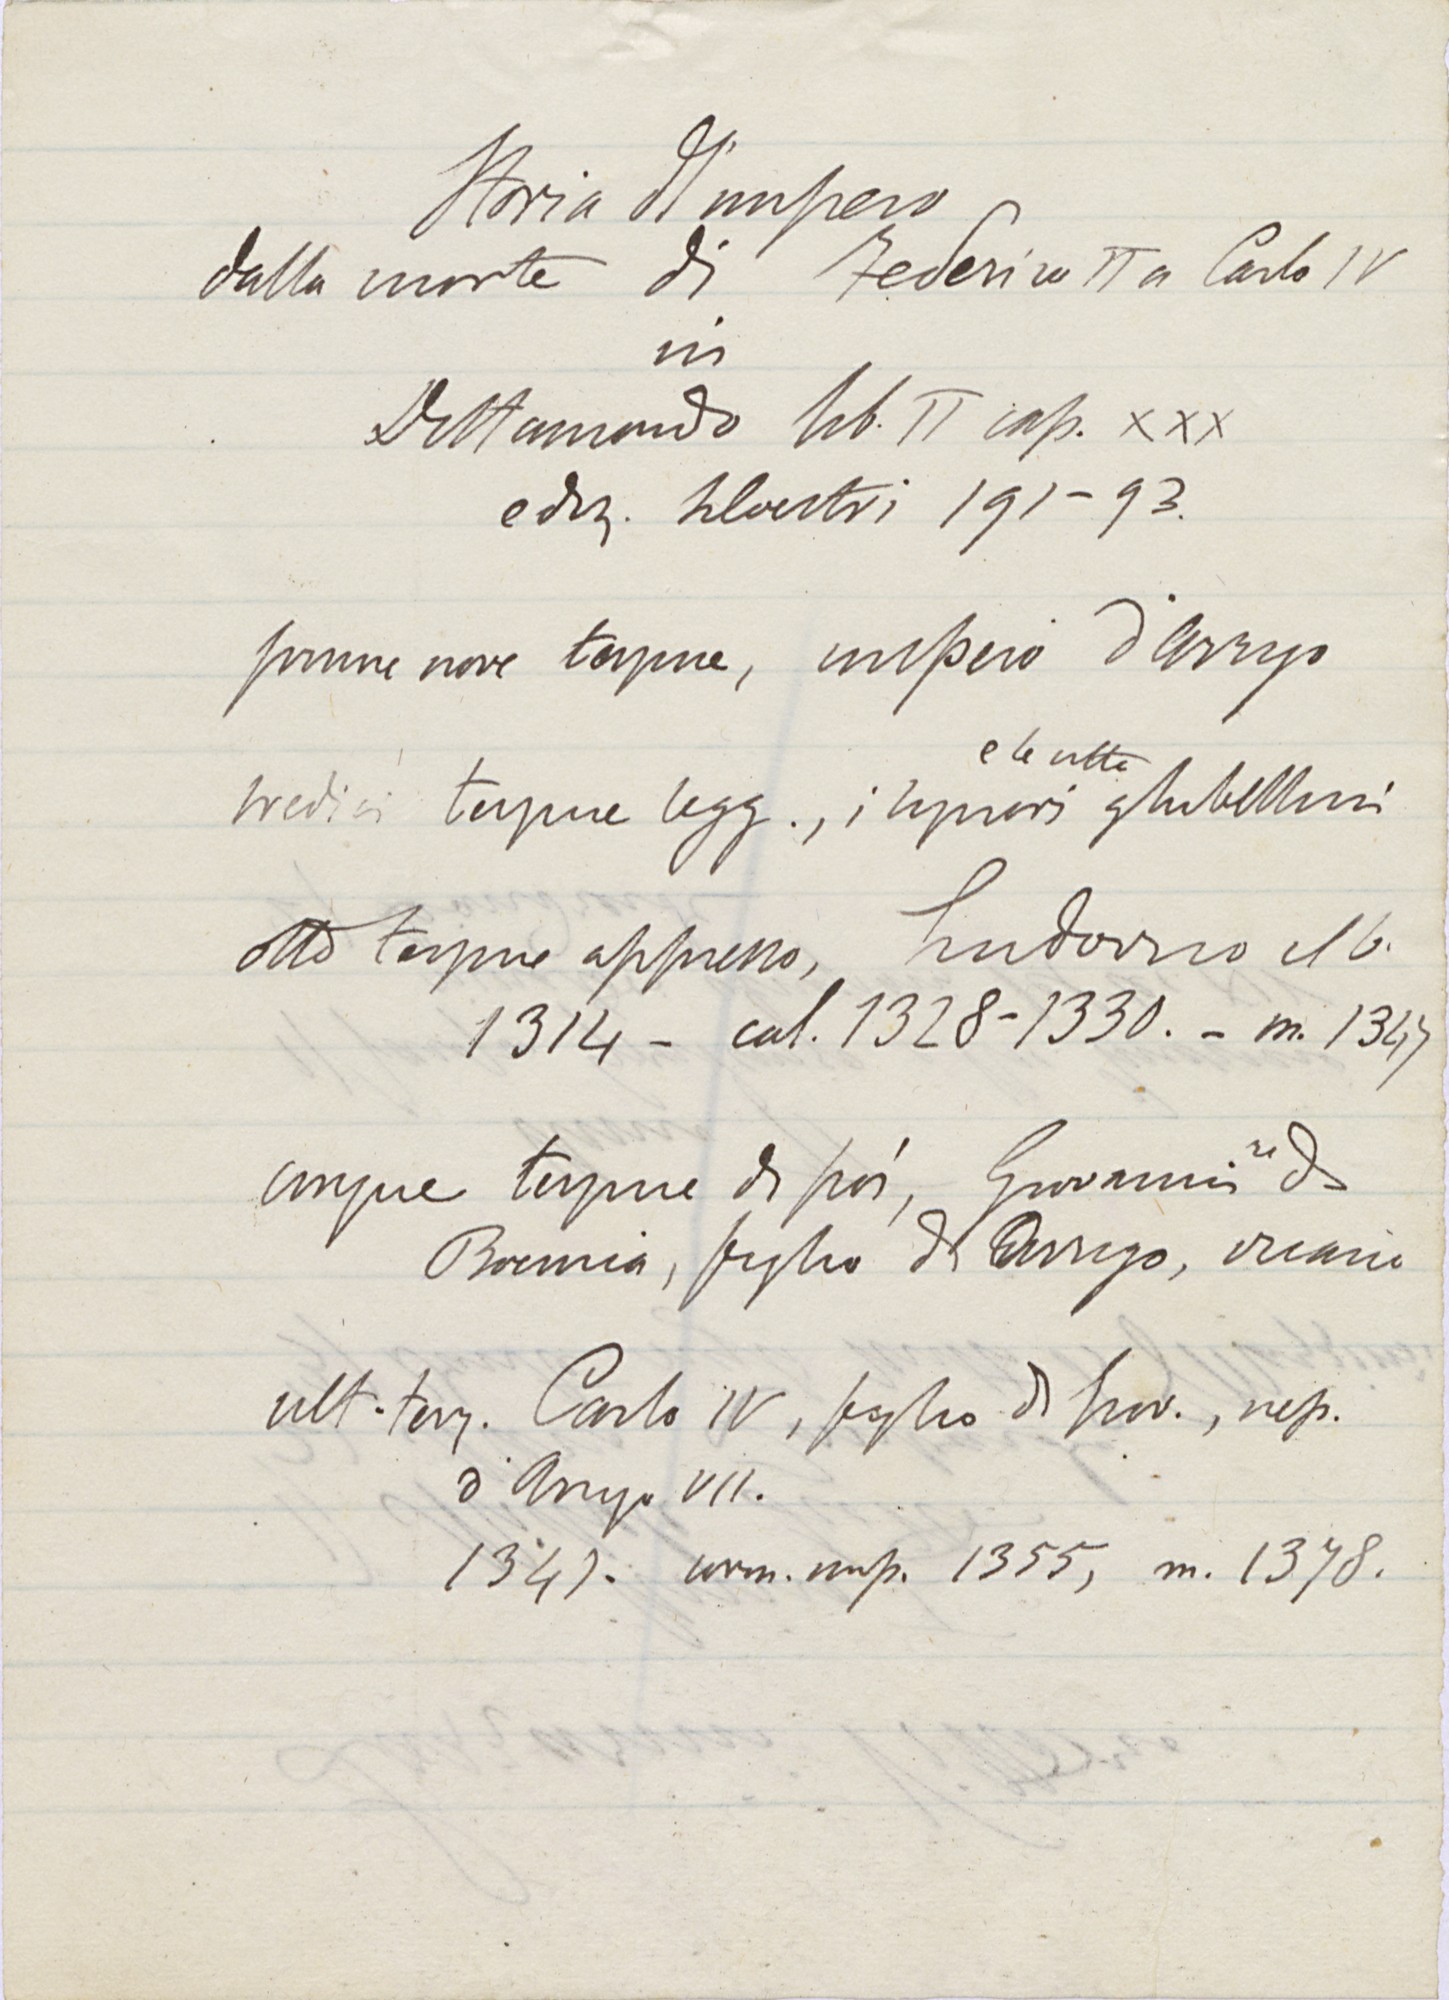 Storia dl'impero
dalla morte di Federico II a Carlo IV
in
Dittamondo lib. II cap. XXX
ediz. Silvestri 191-93.
prime nove terzine, impero d'Arrigo
tredici terzine segg., i signori e le città ghibellini
otto terzine appresso, Ludovico il b.
1314 - cal. 1328-1330. - m. 1347
cinque terzine di poi, Giovanni re di
Boemia, figlio di Arrigo, vicario
ult. terz. Carlo IV, figlio di Giov., nep.
d'Arrigo VII.
1347. coron. imp. 1355, m. 1378.